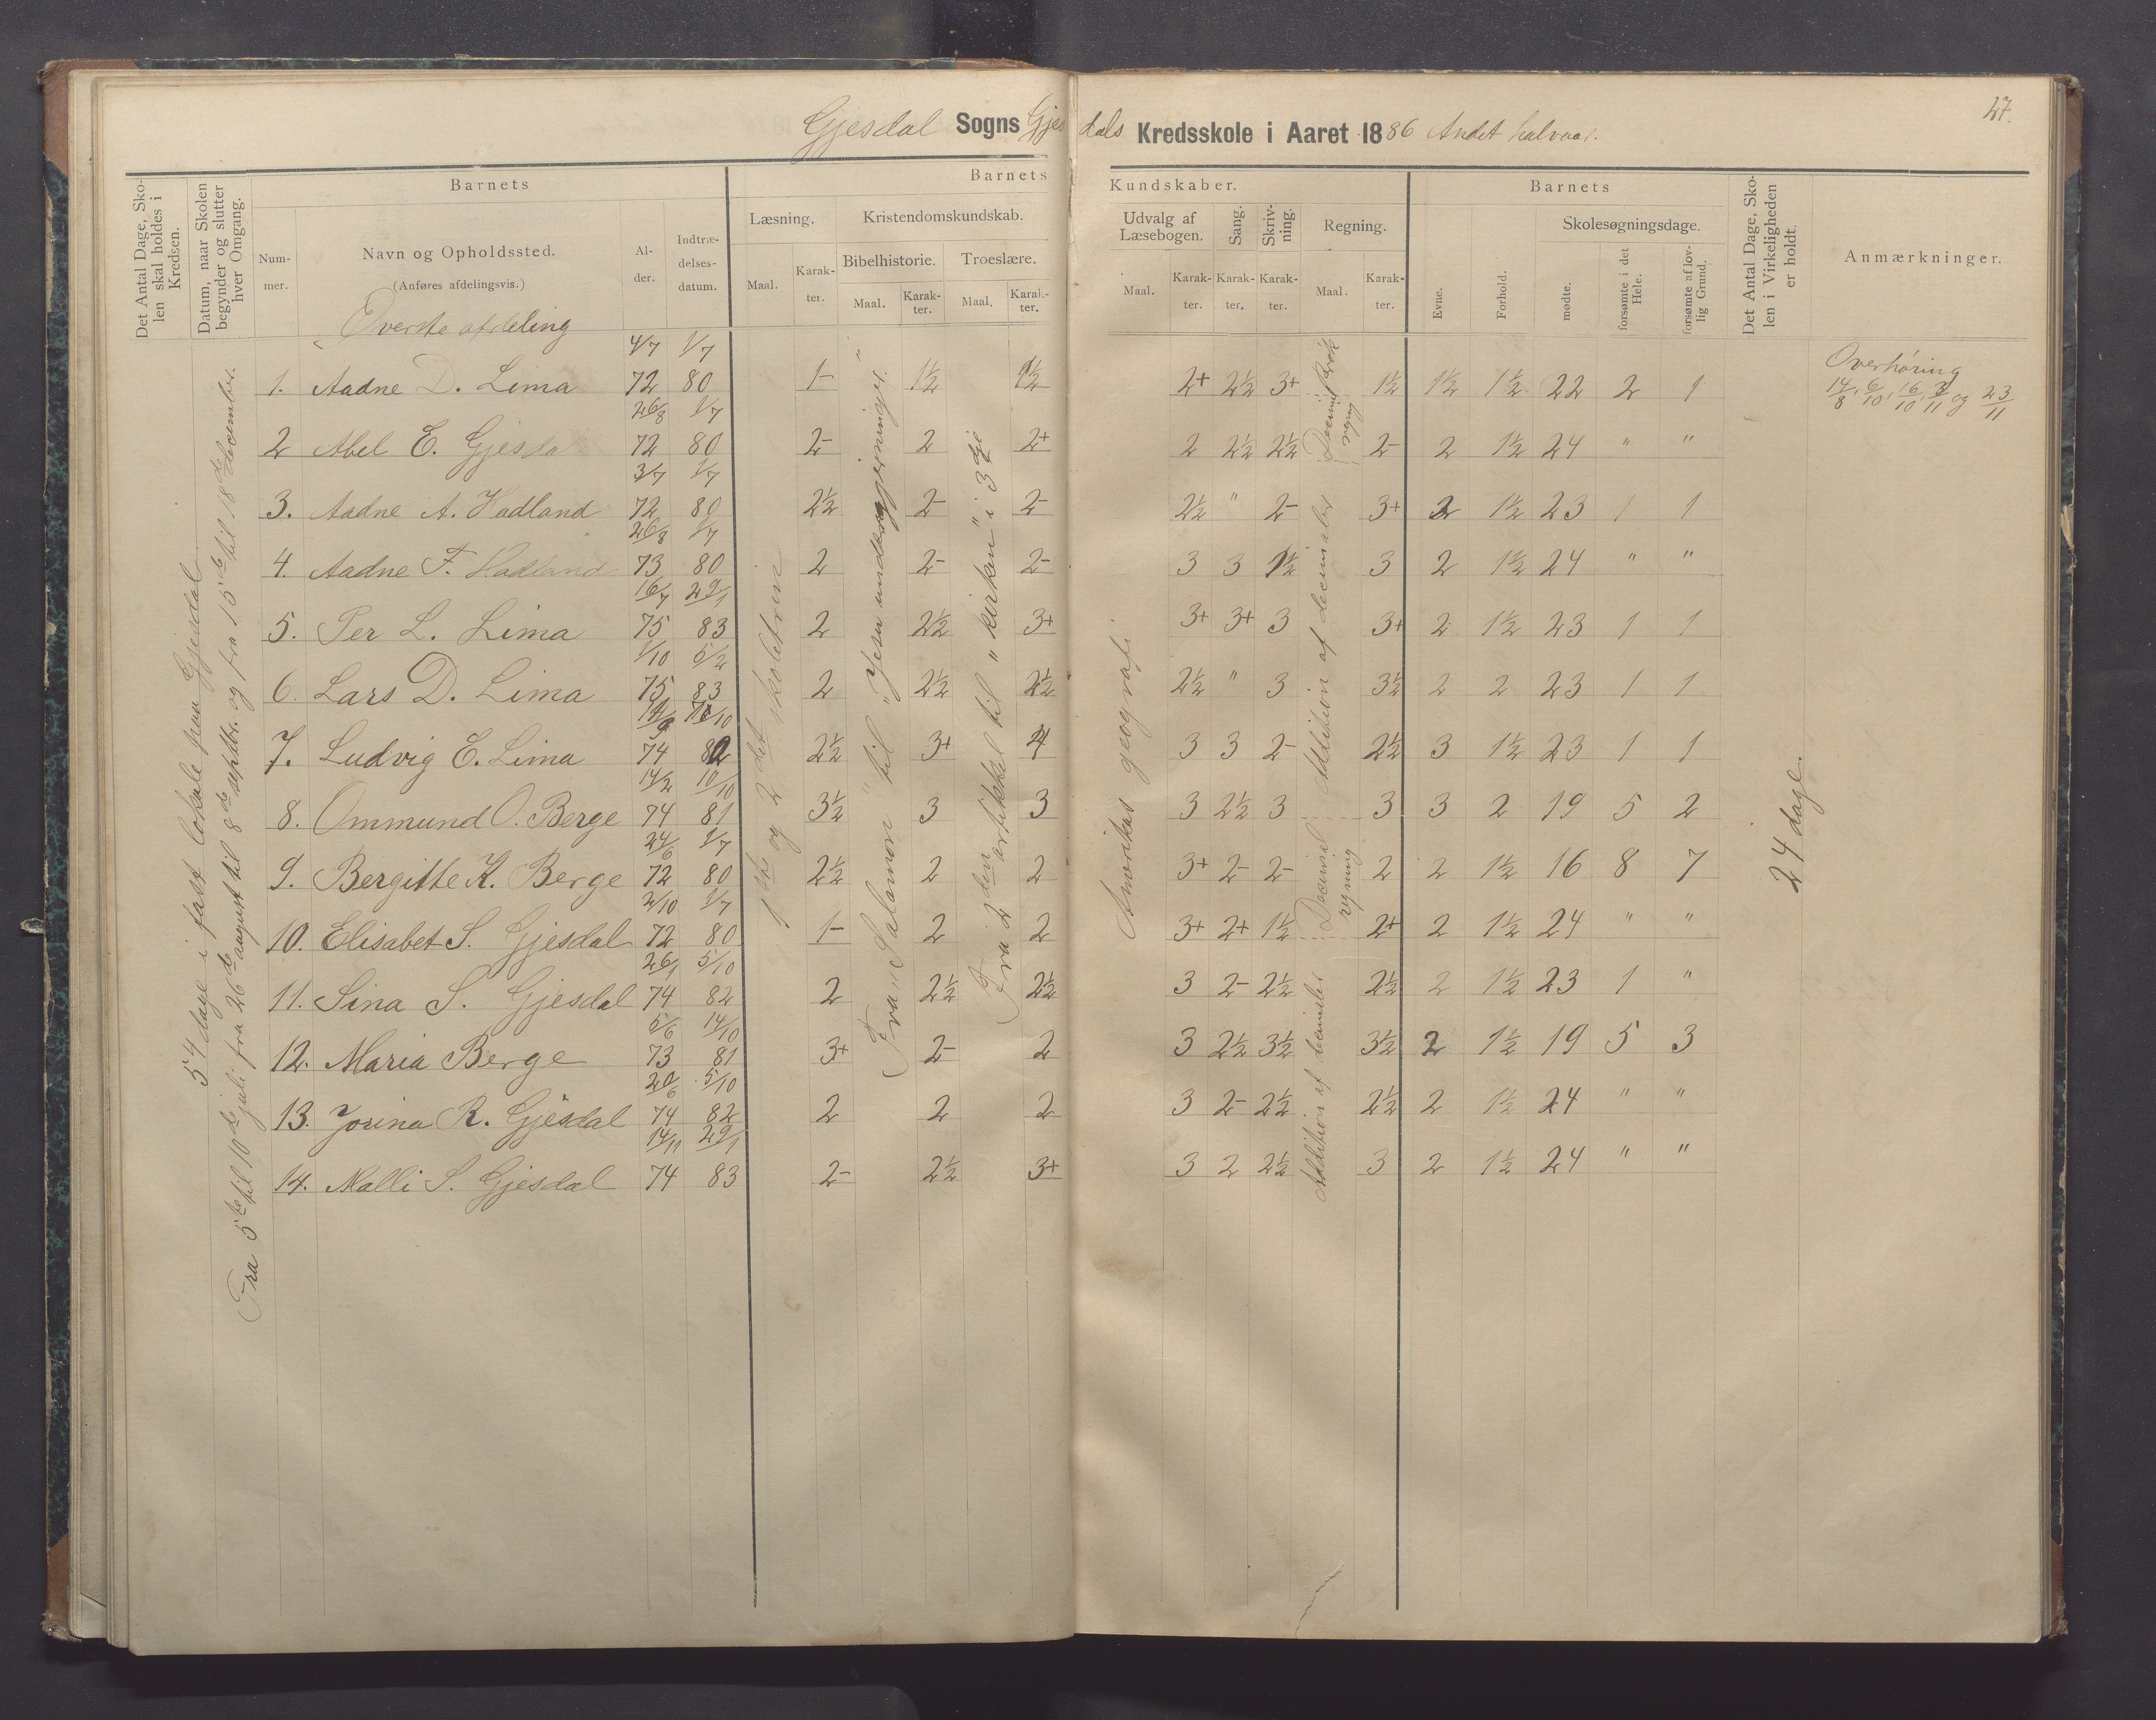 27.
Gjesdal Sogns Gjesdals Kredsskole i Aaret 1886 Andet halvaar.
Det Antal Dage, Skolen skal holdes i Kredsen.
Datum, naar Skolen begynder og slutter hver Omgang.
Barnets
Nummer.
Navn og Opholdssted.
(Anføres afdelingsvis.)
Alder.
Indtrædelsesdatum.
Barnets Kundskaber.
Læsning.
Maal. Karakter.
Kristendomskundskab.
Bibelhistorie. Troeslære.
Maal. Karakter. Maal. Karakter.
Udvalg af Læsebogen.
Maal. Karakter.
Sang.
Karakter.
Skrivning.
Karakter.
Regning.
Maal. Karakter.
Barnets
Evne.
Forhold.
Skolesøgningsdage.
mødte.
forsømte i det Hele.
forsømte af lovlig Grund.
Det Antal Dage, Skolen i Virkeligheden er holdt.
Anmærkninger.
Øverste afdeling
54 dage i fast lokale paa Gjesdal
Fra 5te til 10de juli fra 26de august til 8de septbr. og fra 15de til 18de december.
1ste og 2det skoletrin
Fra "Salomon" til "Jesu undergjerninger."
Fra 2den artikkel til "kirken" i 3dje
Amerikas geografi
Decimal Brøk regning
Addition af decimaler
Decimal regning
Addition af decimaler
24 dage.
Overhøring
14/8, 6/10, 16/10, 3/11 og 23/11
1. Aadne D. Lima 4/7 72 1/7 80 1- 1½ 1½ 2+ 2½ 3+ 1½ 1½ 1½ 22 2 1
2 Abel E. Gjesdal 26/8 72 1/7 80 2- 2 2+ 2 2½ 2½ 2- 2 1½ 24 " "
3. Aadne A. Hadland 3/7 72 1/7 80 2½ 2- 2- 2½ " 2- 3+ 2 1½ 23 1 1
4. Aadne F. Hadland 26/8 73 1/7 80 2 2- 2- 3 3 1½ 3 2 1½ 24 " "
5. Per L. Lima 16/7 75 29/1 83 2 2½ 3+ 3+ 3+ 3 3+ 2 1½ 23 1 1
6. Lars D. Lima 1/10 75 5/2 83 2 2½ 2½ 2½ " 3 3½ 2 2 23 1 1
7. Ludvig E. Lima 74 82 2½ 3+ 4 3 3 2- 2½ 3 1½ 23 1 1
8. Ommund O. Berge 14/2 74 10/10 81 3½ 3 3 3 2½ 3 3 3 2 19 5 2
9. Bergitte K. Berge 24/6 72 1/7 80 2½ 2 2 3+ 2- 2- 2 2 1½ 16 8 7
10. Elisabet S. Gjesdal 2/10 72 1/7 80 1- 2 2 3+ 2+ 1½ 2+ 2 1½ 24 " "
11. Sina S. Gjesdal 26/1 74 5/10 82 2 2½ 2½ 3 2- 2½ 2½ 2 1½ 23 1 "
12. Maria Berge 5/6 73 14/10 81 3+ 2- 2 3 2½ 3½ 3½ 2 1½ 19 5 3
13. Jorina R. Gjesdal 20/6 74 5/10 82 2 2 2 3 2- 2½ 2½ 2 1½ 24 " "
14. Malli S. Gjesdal 14/11 74 29/1 83 2- 2½ 3+ 3 2 2½ 3 2 1½ 24 " "